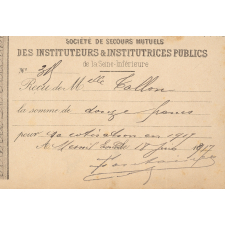 SOCIÉTÉ DE SECOURS MUTUELS
DES INSTITUTEURS & INSTITUTRICES PUBLICS
de la Seine-Inférieure
N°
Reçu de Melle Tallon
la somme de douze francs
pour sa cotisation en 1917
A Mesnil 18 juin 1917